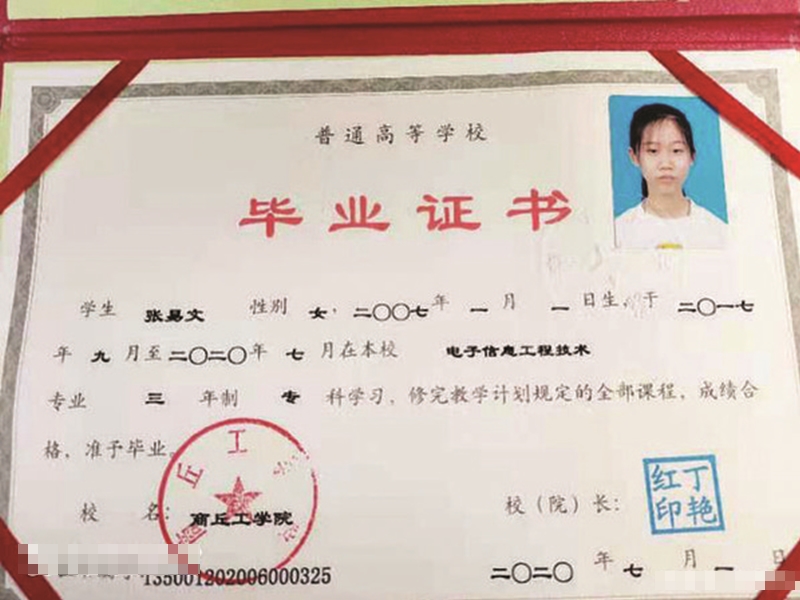 普通高等学校
毕业证书
学生 张易文 性别 女，二〇〇七年 一 月 一 日生，于 二〇一七
年 九 月至二〇二〇年 七 月在本校 电子信息工程技术
专业 三 年制 专 科学习，修完教学计划规定的全部课程，成绩合
格，准予毕业。
丘工
校 名：商丘工学院 校（院）长：
丁艳红印
135001202006000325 二〇二〇 年 七 月 一 日